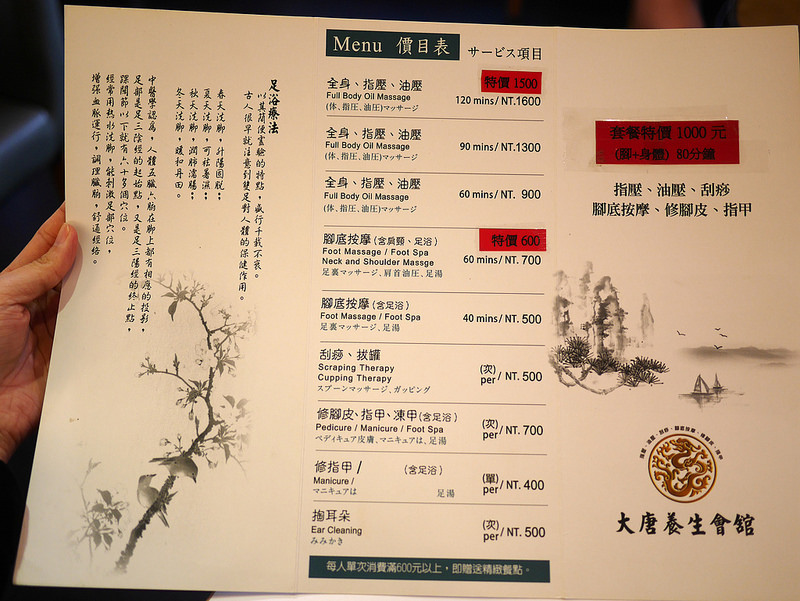 足浴療法
以其簡便靈驗的特點，盛行千載不衰。
古人很早就注意到雙足對人體的保健作用。
春天洗腳，升陽固脫；
夏天洗腳，可祛暑濕；
秋天洗腳，潤肺濡腸；
冬天洗腳，暖和丹田。
中醫學認為，人體五臟六腑在腳上都有相應的投影，
足部是足三陰經的起始點，又是足三陽經的終止點，
踝關節以下就有六十多個穴位。
經常用熱水洗腳，能刺激足部穴位，
增強血脈運行，調理臟腑，舒通經絡。
Menu 價目表 サービス項目
全身、指壓、油壓 特價 1500
Full Body Oil Massage 120 mins/ NT.1600
(体、指圧、油圧)マッサージ
全身、指壓、油壓
Full Body Oil Massage 90 mins/ NT.1300
(体、指圧、油圧)マッサージ
全身、指壓、油壓
Full Body Oil Massage 60 mins/ NT. 900
(体、指圧、油圧)マッサージ
腳底按摩(含肩頸、足浴) 特價 600
Foot Massage / Foot Spa
Neck and Shoulder Massge 60 mins/ NT. 700
足裏マッサージ、肩首油圧、足湯
腳底按摩(含足浴)
Foot Massage / Foot Spa 40 mins/ NT. 500
足裏マッサージ、足湯
刮痧、拔罐
Scraping Therapy (次)
Cupping Therapy per / NT. 500
スプーンマッサージ、ガッピング
修腳皮、指甲、凍甲(含足浴) (次)
Pedicure / Manicure / Foot Spa per / NT. 700
ペディキュア皮膚、マニキュアは、足湯
修指甲 / (含足浴) (單)
Manicure / per / NT. 400
マニキュアは 足湯
掏耳朵 (次)
Ear Cleaning per / NT. 500
みみかき
每人單次消費滿600元以上，即贈送精緻餐點。
套餐特價 1000 元
(腳+身體) 80分鐘
指壓、油壓、刮痧
腳底按摩、修腳皮、指甲
大唐養生會館